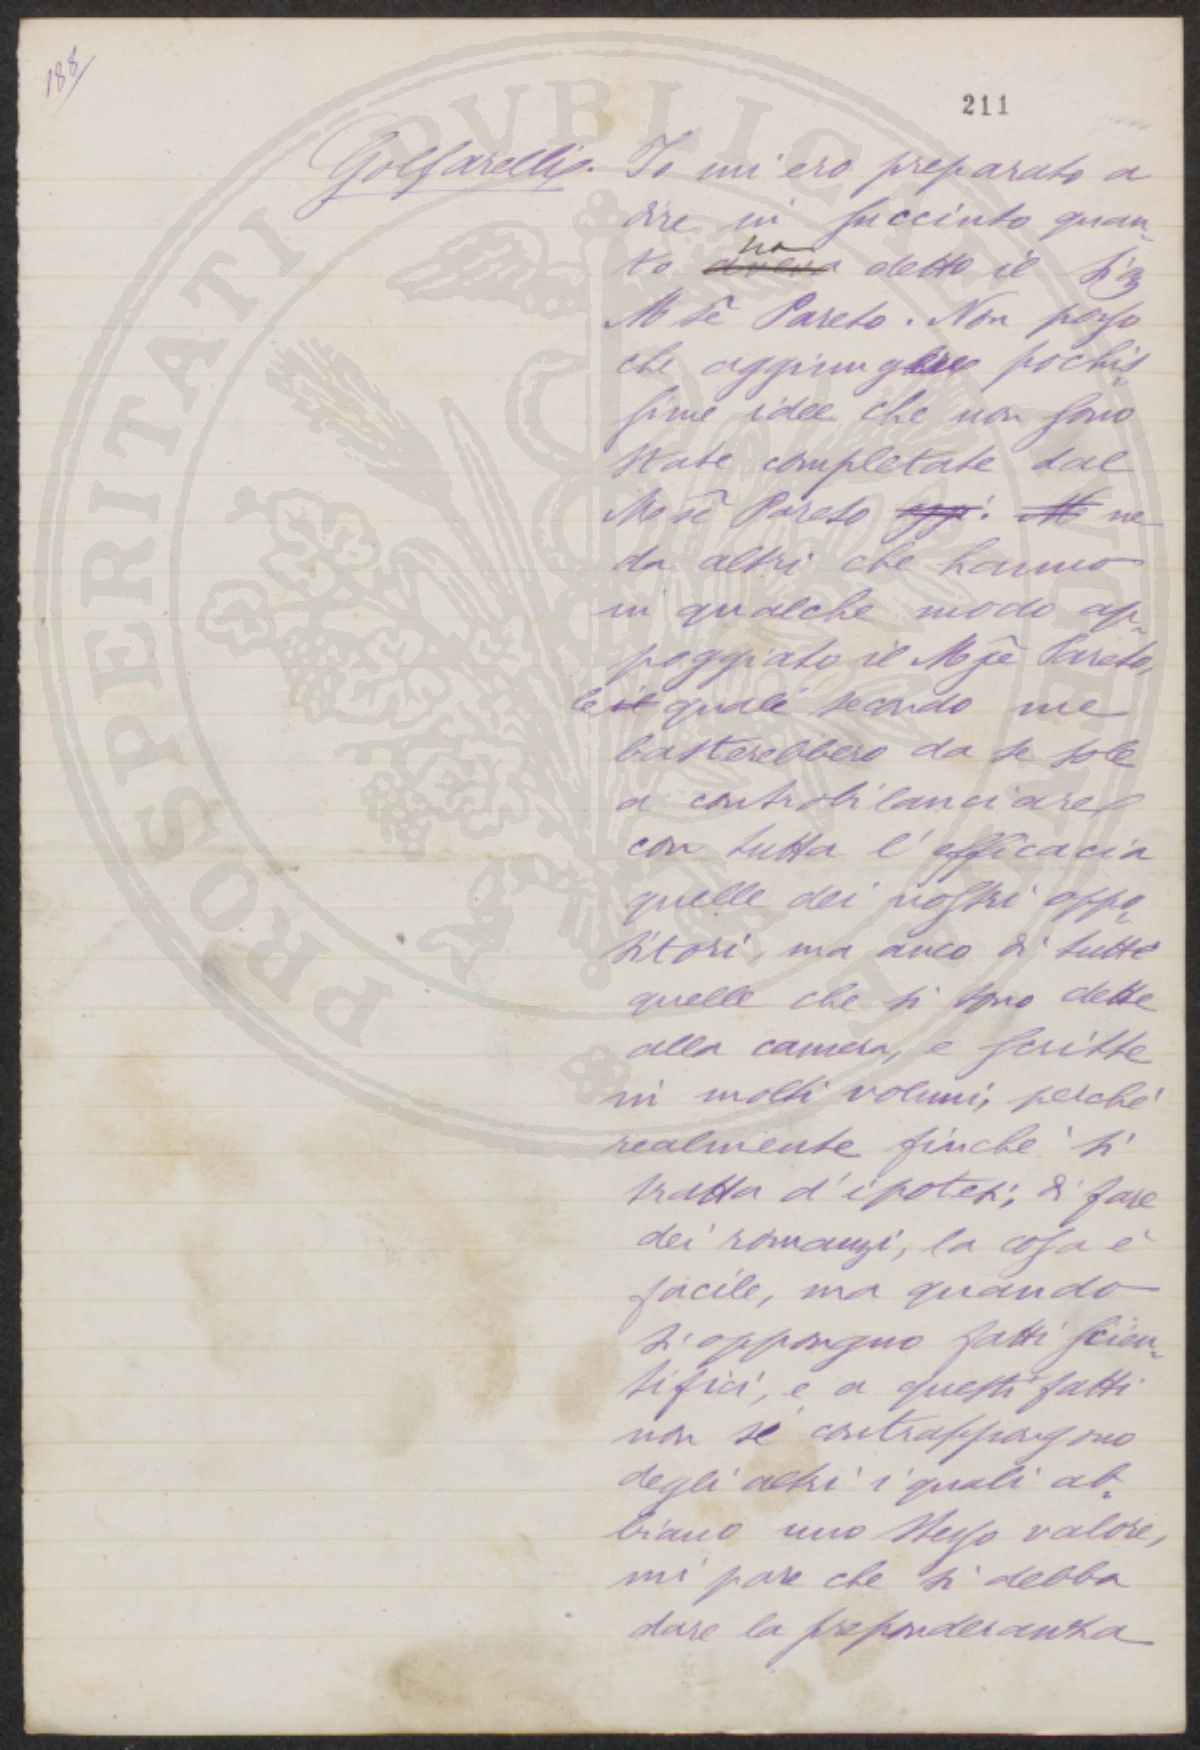 188
211
Golfarelli. Io mi ero preparato a
dire in succinto quan-
to aveva ha detto il Sig
Mse Pareto. Non posso
che aggiungere pochis
sime idee che non sono
state completate dal
Mse Pareto ne
da altri che hanno
in qualche modo ap-
poggiato il Mse Pareto,
le il quali secondo me
basterebbero da se sole
a controbilanciare
con tutta l'efficacia
quelle dei nostri oppo-
sitori, ma anco di tutte
quelle che si sono dette
alla camera, e scritte
in molti volumi, perché
realmente finché si
tratta d'ipotesi, di fare
dei romanzi, la cosa è
facile, ma quando
si oppongno fatti scien-
tifici, e a questi fatti
non se contrappongono
degli altri i quali ab-
biano uno stesso valore,
mi pare che si debba
dare la preponderanza
PROSPERITATI PVBLICAE